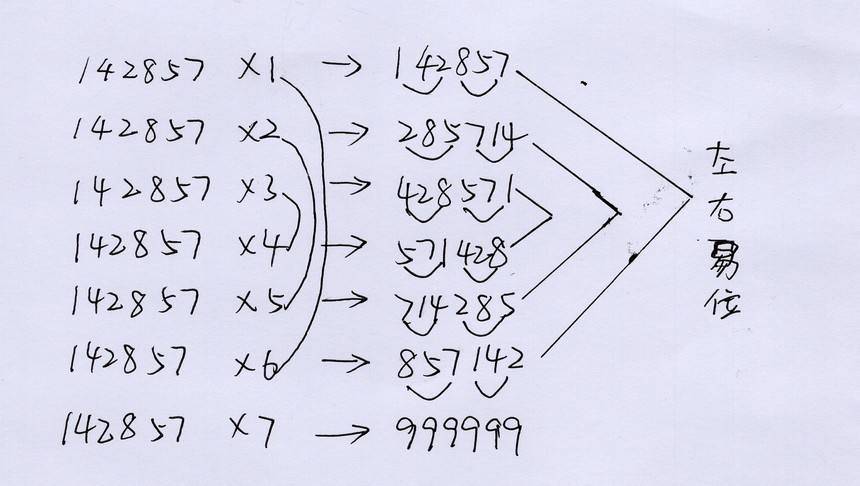 142857 ×1 → 142857
142857 ×2 → 285714
142857 ×3 → 428571
142857 ×4 → 571428
142857 ×5 → 714285
142857 ×6 → 857142
142857 ×7 → 999999
左右易位